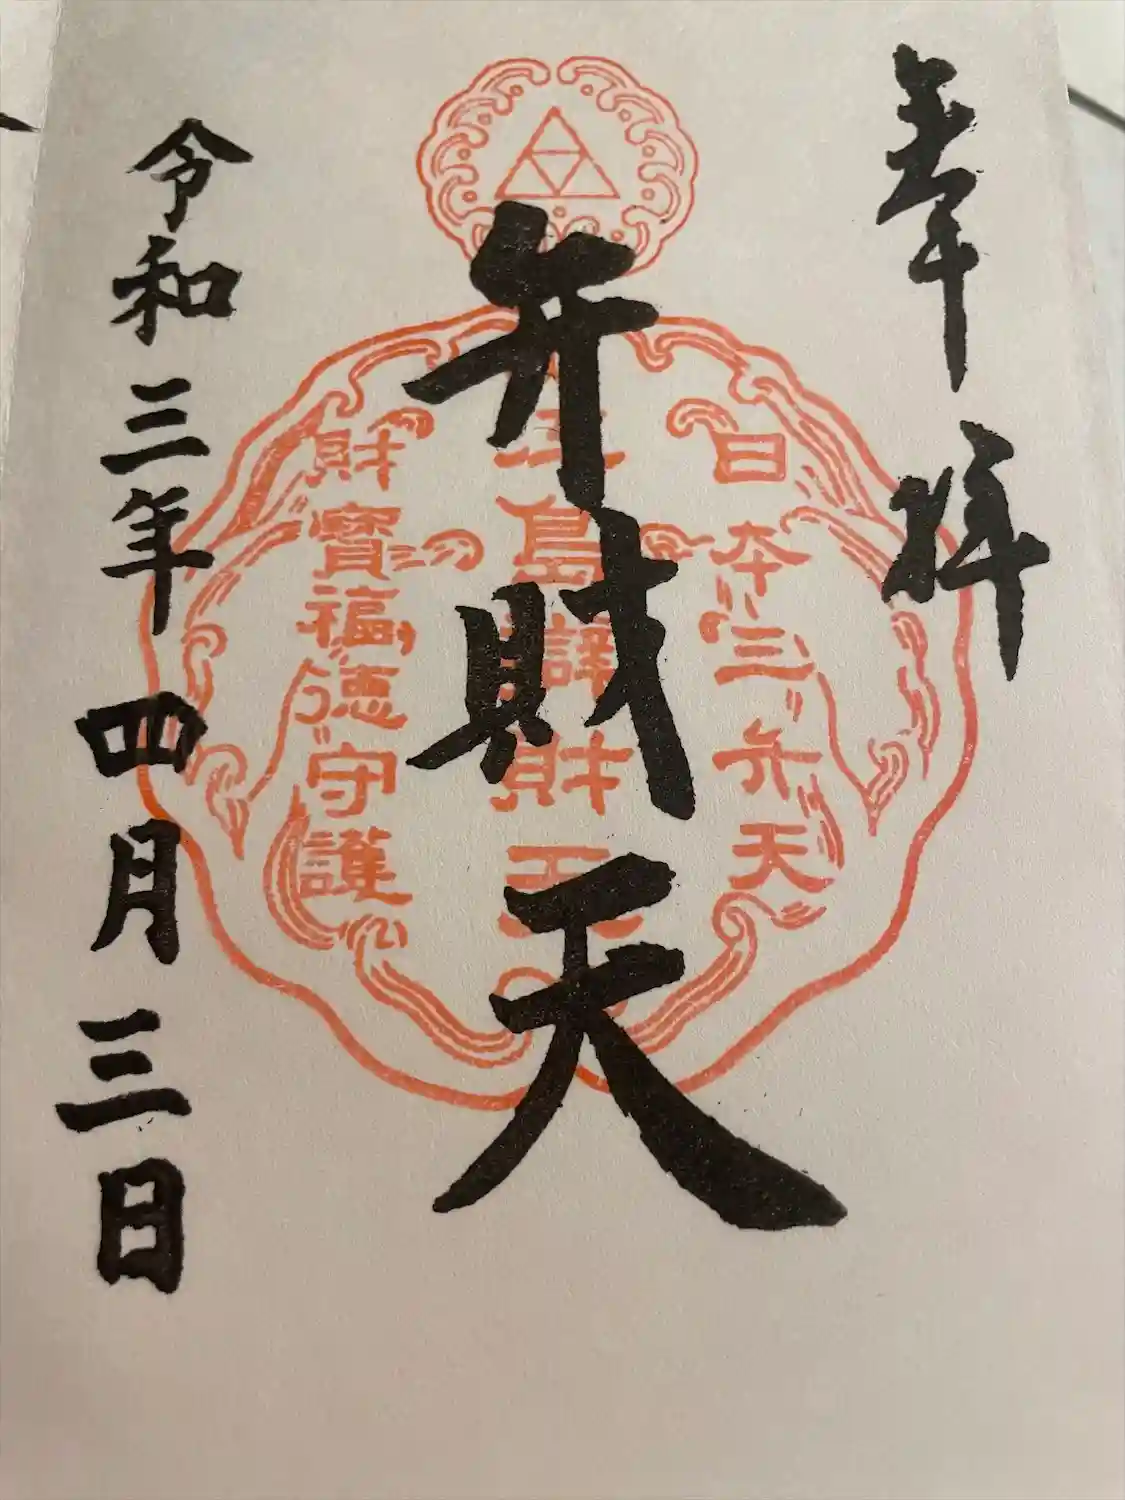 奉拝
日本三弁天
江島辯財天
財寶福徳守護
弁財天
令和三年四月三日